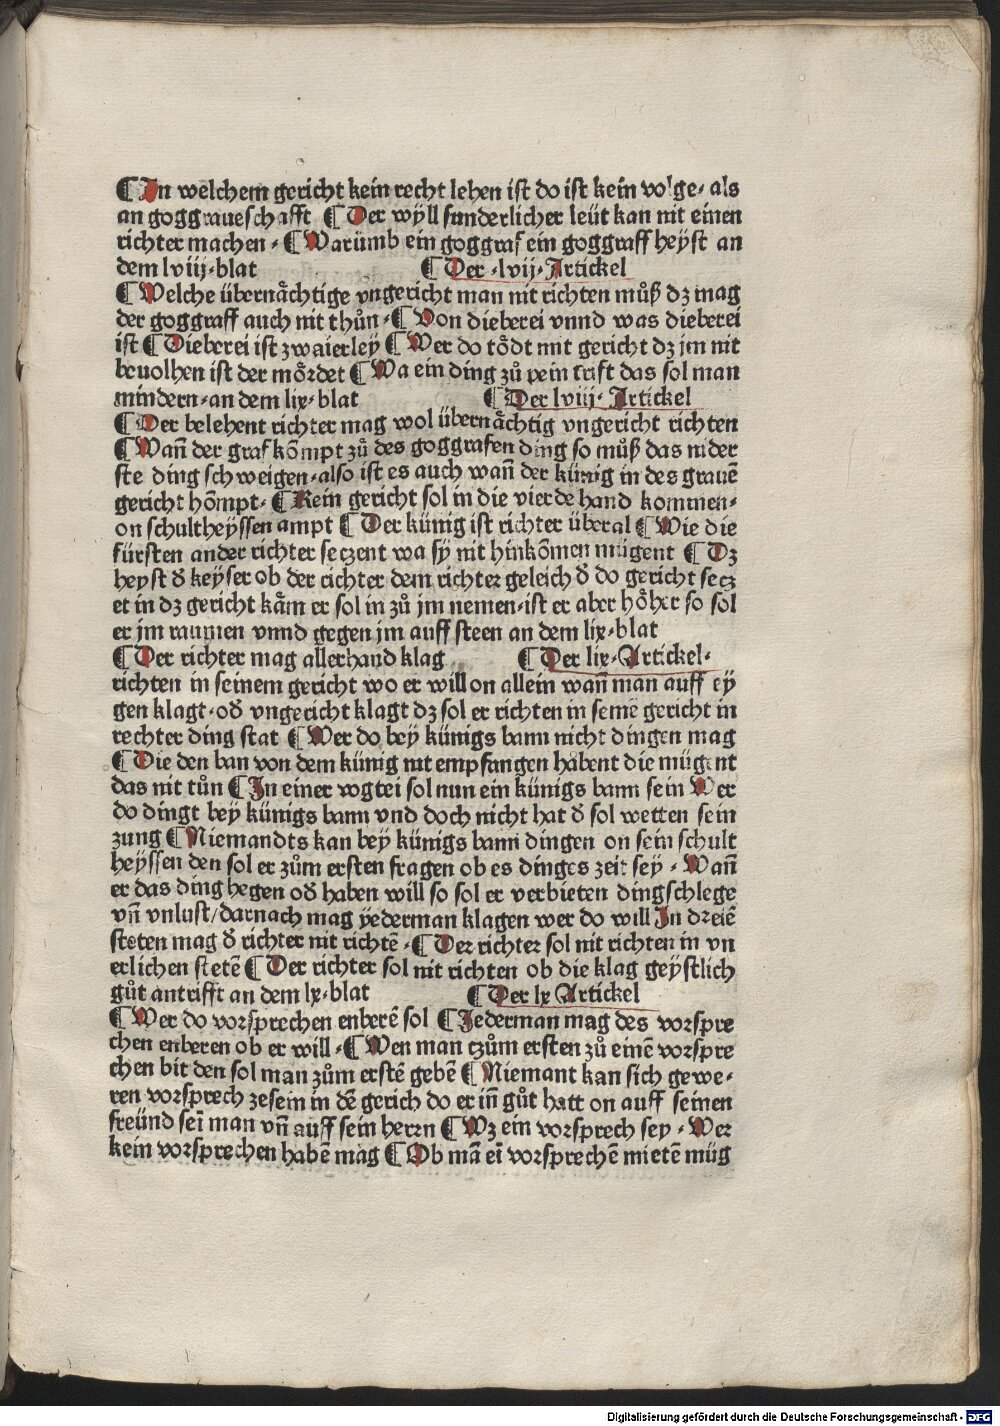 ¶In welchem gericht kein recht lehen ist do ist kein volge⸗ als
an goggraueschafft ¶Der wÿll sunderlicher leüt kan nit einen
richter machen⸗ ¶Warümb ein goggraf ein goggraff heyst an
dem lviij⸗blat ¶Der ⸗lvij⸗Artickel
¶Welche übernåchtige vngericht man nit richten můß dz mag
der goggraff auch nit thůn⸗¶Von dieberei vnnd was dieberei
ist ¶Dieberei ist zwaierley ¶Wer do tȯdt mit gericht dz jm nit
beuolhen ist der mȯrdet ¶Wa ein ding zů pein trift das sol man
mindern⸗an dem lix⸗blat ¶Der lviij⸗Artickel
¶Der belehent richter mag wol übernåchtig vngericht richten
¶Wañ der graf kȯmpt zů des goggrafen ding so můß das nider
ste ding schweigen⸗also ist es auch wañ der künig in des grauē
gericht kȯmpt⸗¶Kein gericht sol in die vierde hand kommen⸗
on schultheyssen ampt ¶Der künig ist richter überal ¶Wie die
fürsten ander richter seczent wa sÿ nit hinkȯmen mügent ¶Dz
heyst d̄ keyser ob der richter dem richter geleich d̄ do gericht secz
et in dz gericht kåm er sol in zů jm nemen⸗ist er aber hȯher so sol
er jm raumen vnnd gegen jm auff steen an dem lix⸗blat
¶Der richter mag allerhand klag ¶Der lix⸗Artickel⸗
richten in seinem gericht wo er will on allein wañ man auff eÿ
gen klagt⸗od̄ vngericht klagt dz sol er richten in seinē gericht in
rechter ding stat ¶Wer do bey künigs bann nicht dingen mag
¶Die den ban von dem künig nit empfangen habent die mügent
das nit tůn ¶In einer vogtei sol nun ein künigs bann sein Wer
do dingt bey künigs bann vnd doch nicht hat d̄ sol wetten sein
zung ¶Niemandts kan bey künigs bann dingen on sein schult
heÿssen den sol er zům ersten fragen ob es dinges zeit sey ⸗ Wañ
er das ding hegen od̄ haben will so sol er verbieten dingschlege
vñ vnlust/darnach mag ÿederman klagen wer do will In dreiē
steten mag d̄ richter nit richtē ⸗¶Der richter sol nit richten in vn
erlichen stetē ¶Der richter sol nit richten ob die klag geÿstlich
gůt antrifft an dem lx⸗blat ¶Der lx Artickel
¶Wer do vorsprechen enberē sol ¶Jederman mag des vorspre
chen enberen ob er will⸗¶Wen man czům ersten zů einē vorspre
chen bit den sol man zům erstē gebē ¶Niemant kan sich gewe⸗
ren vorsprech zesein in dē gerich do er iñ gůt hatt on auff seinen
freünd sei man vñ auff sein herrn ¶Wz ein vorsprech sey ⸗ Wer
kein vorsprechen habē mag ¶Ob mā eī vorsprechē mietē müg
Digitalisierung gefördert durch die Deutsche Forschungsgemeinschaft - DFG